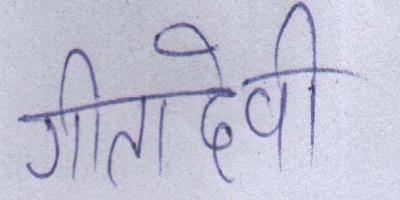 गीता देवी